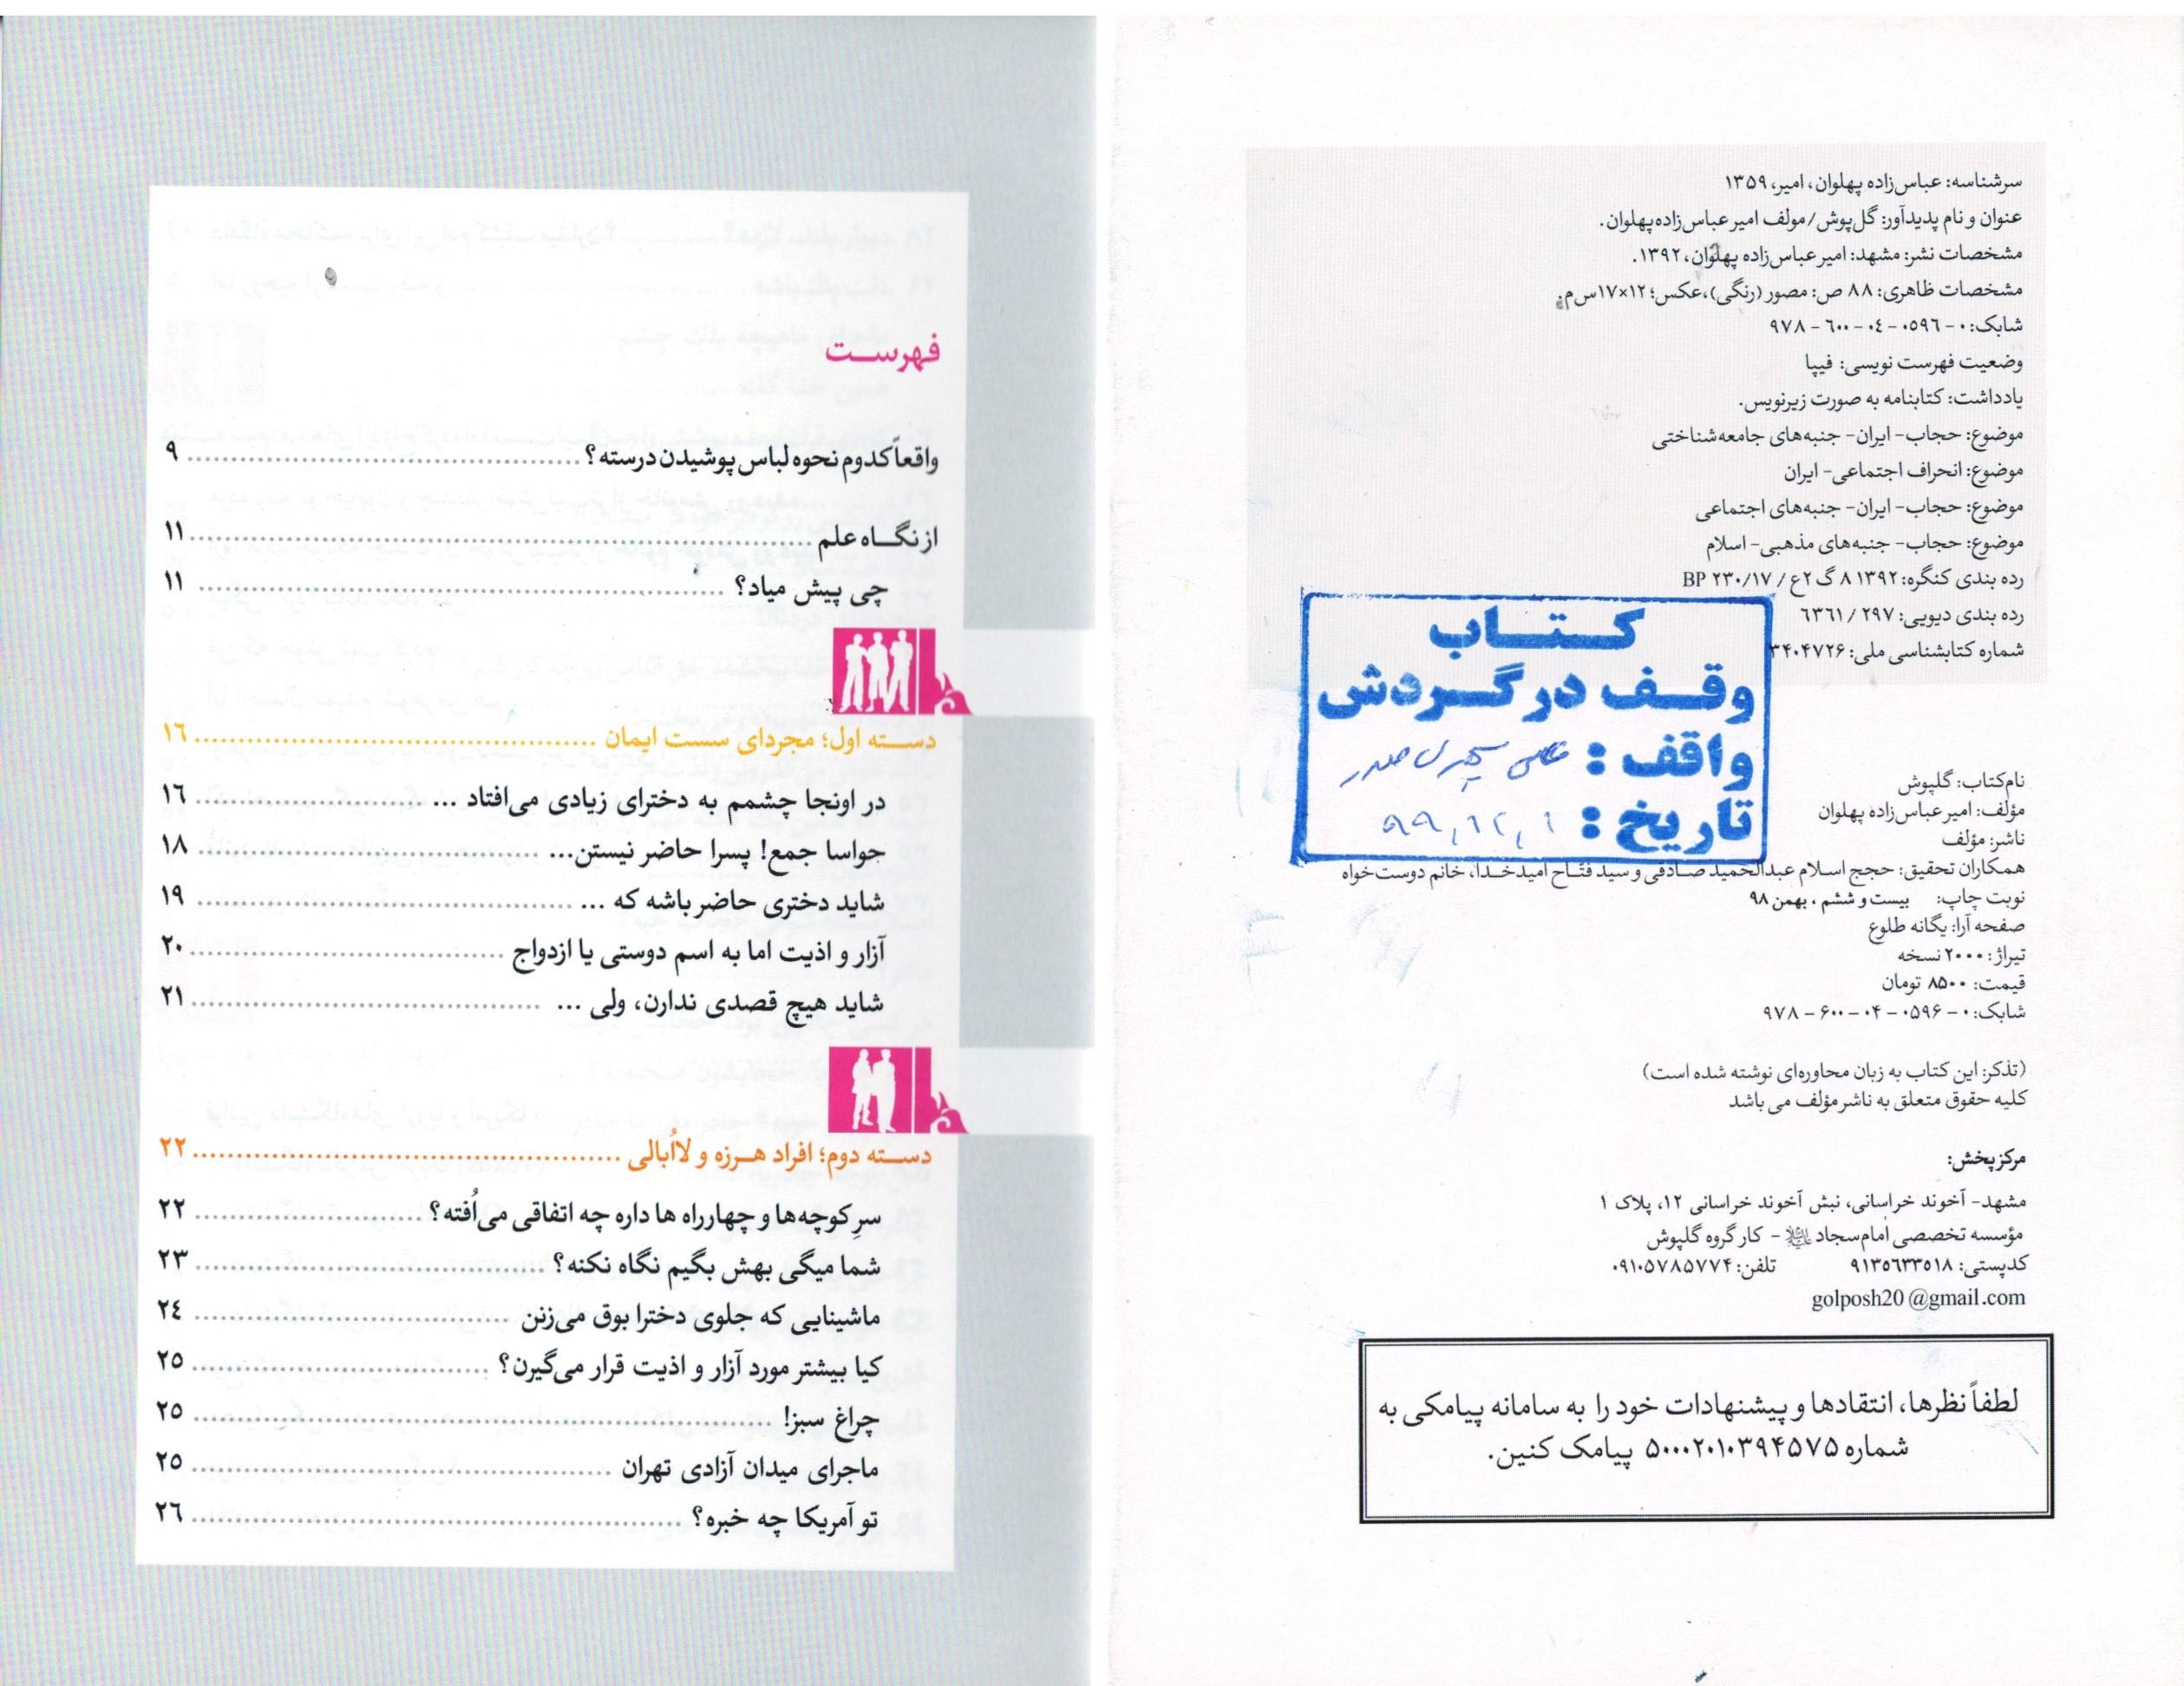 سرشناسه: عباس‌زاده پهلوان، امیر، ۱۳۵۹
عنوان و نام پدیدآور: گل‌پوش/مولف امیر عباس‌زاده‌پهلوان.
مشخصات نشر: مشهد: امیر عباس‌زاده پهلوان، ۱۳۹۲.
مشخصات ظاهری: ۸۸ ص: مصور (رنگی)، عکس؛ ۱۲×۱۷س‌م.
شابک: ۰ - ۰۵۹۶ - ۰۴ - ۶۰۰ - ۹۷۸
وضعیت فهرست نویسی: فیپا
یادداشت: کتابنامه به صورت زیرنویس.
موضوع: حجاب- ایران- جنبه‌های جامعه‌شناختی
موضوع: انحراف اجتماعی- ایران
موضوع: حجاب- ایران- جنبه‌های اجتماعی
موضوع: حجاب- جنبه‌های مذهبی- اسلام
رده بندی کنگره: ۱۳۹۲ ۸ گ ۲ع / BP ۲۳۰/۱۷
رده بندی دیویی: ۲۹۷ / ۶۳۶۱
شماره کتابشناسی ملی: ۳۴۰۴۷۲۶
کـتـــاب
وقــف در گـــردش
واقف :
تاریخ : ۹۹,۱۲,۱
نام‌کتاب: گلپوش
مؤلف: امیر عباس‌زاده پهلوان
ناشر: مؤلف
همکاران تحقیق: حجج اسلام عبدالحمید صادقی و سید فتّاح امیدخدا، خانم دوست‌خواه
نوبت چاپ: بیست و ششم ، بهمن ۹۸
صفحه آرا: یگانه طلوع
تیراژ: ۲۰۰۰ نسخه
قیمت: ۸۵۰۰ تومان
شابک: ۰ - ۰۵۹۶ - ۰۴ - ۶۰۰ - ۹۷۸
(تذکر: این کتاب به زبان محاوره‌ای نوشته شده است)
کلیه حقوق متعلق به ناشر مؤلف می باشد
مرکز پخش:
مشهد- آخوند خراسانی، نبش آخوند خراسانی ۱۲، پلاک ۱
مؤسسه تخصصی امام‌سجاد علیه‌السلام - کارگروه گلپوش
کدپستی: ۹۱۳۵۶۳۳۵۱۸ تلفن: ۰۹۱۰۵۷۸۵۷۷۴
golposh20@gmail.com
لطفاً نظرها، انتقادها و پیشنهادات خود را به سامانه پیامکی به
شماره ۵۰۰۰۲۰۱۰۳۹۴۵۷۵ پیامک کنین.
فهرســت
واقعاً کدوم نحوه لباس پوشیدن درسته؟ ........ ۹
از نگـــاه علم ........ ۱۱
چی پیش میاد؟ ........ ۱۱
دســته اول؛ مجردای سست ایمان ........ ۱۶
در اونجا چشمم به دخترای زیادی می‌افتاد ... ........ ۱۶
حواسا جمع! پسرا حاضر نیستن... ........ ۱۸
شاید دختری حاضر باشه که ... ........ ۱۹
آزار و اذیت اما به اسم دوستی یا ازدواج ........ ۲۰
شاید هیچ قصدی ندارن، ولی ... ........ ۲۱
دســته دوم؛ افراد هــرزه و لااُبالی ........ ۲۲
سرِ کوچه‌ها و چهارراه ها داره چه اتفاقی می‌اُفته؟ ........ ۲۲
شما میگی بهش بگیم نگاه نکنه؟ ........ ۲۳
ماشینایی که جلوی دخترا بوق می‌زنن ........ ۲۴
کیا بیشتر مورد آزار و اذیت قرار می‌گیرن؟ ........ ۲۵
چراغ سبز! ........ ۲۵
ماجرای میدان آزادی تهران ........ ۲۵
تو آمریکا چه خبره؟ ........ ۲۶